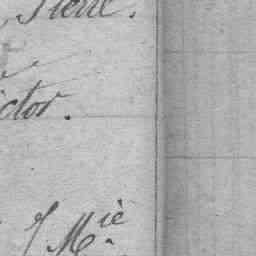 Pierre.
ictor.
J Mie.